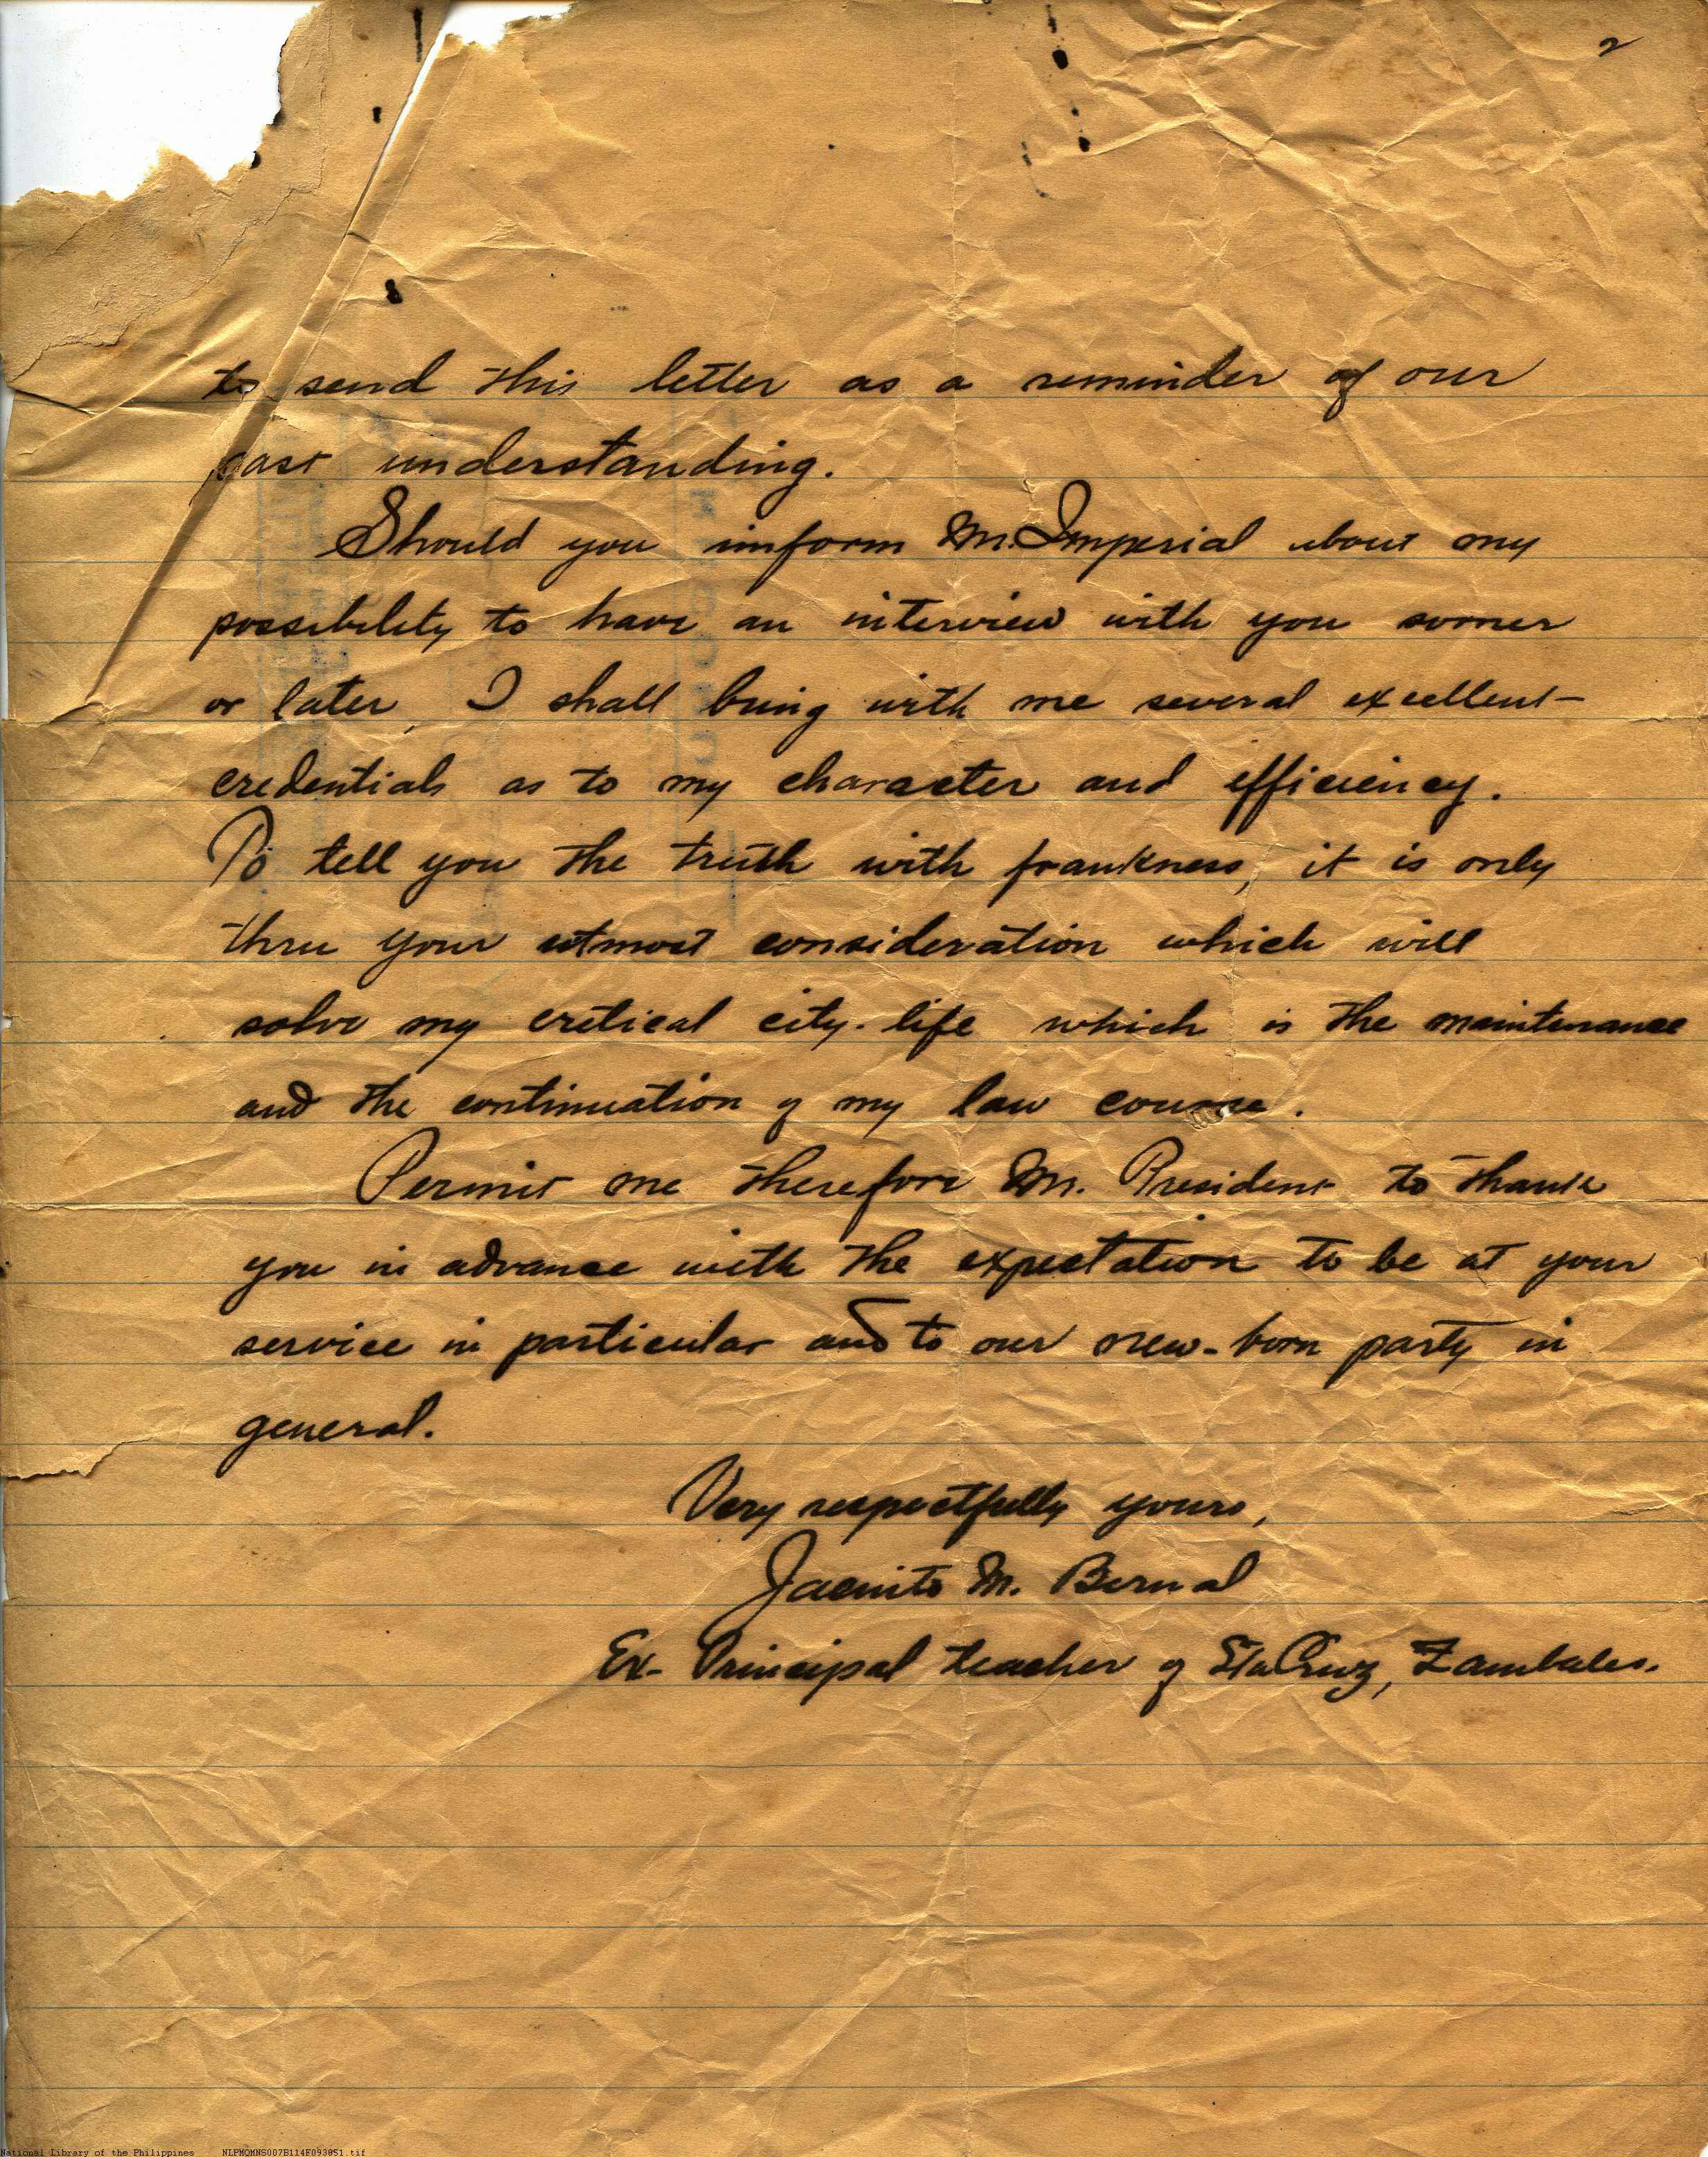 2
to send this letter as a reminder of our
past understanding.
Should you imform Mr. Imperial about my
possibility to have an interview with you sooner
or later, I shall bring with me several excellent
credentials as to my character and efficiency.
To tell you the truth with frankness, it is only
thru your utmost consideration which will
solve my critical city-life which is the maintenance
and the continuation of my law course.
Permit me therefore Mr. President to thank
you in advance with the expectation to be at your
service in particular and to our new-born party in
general.
Very respectfully yours,
Jacinto M. Bernal
Ex-Principal teacher of Sta Cruz, Zambales.
National Library of the Philippines NLPMQMNS007B114F093851.tif